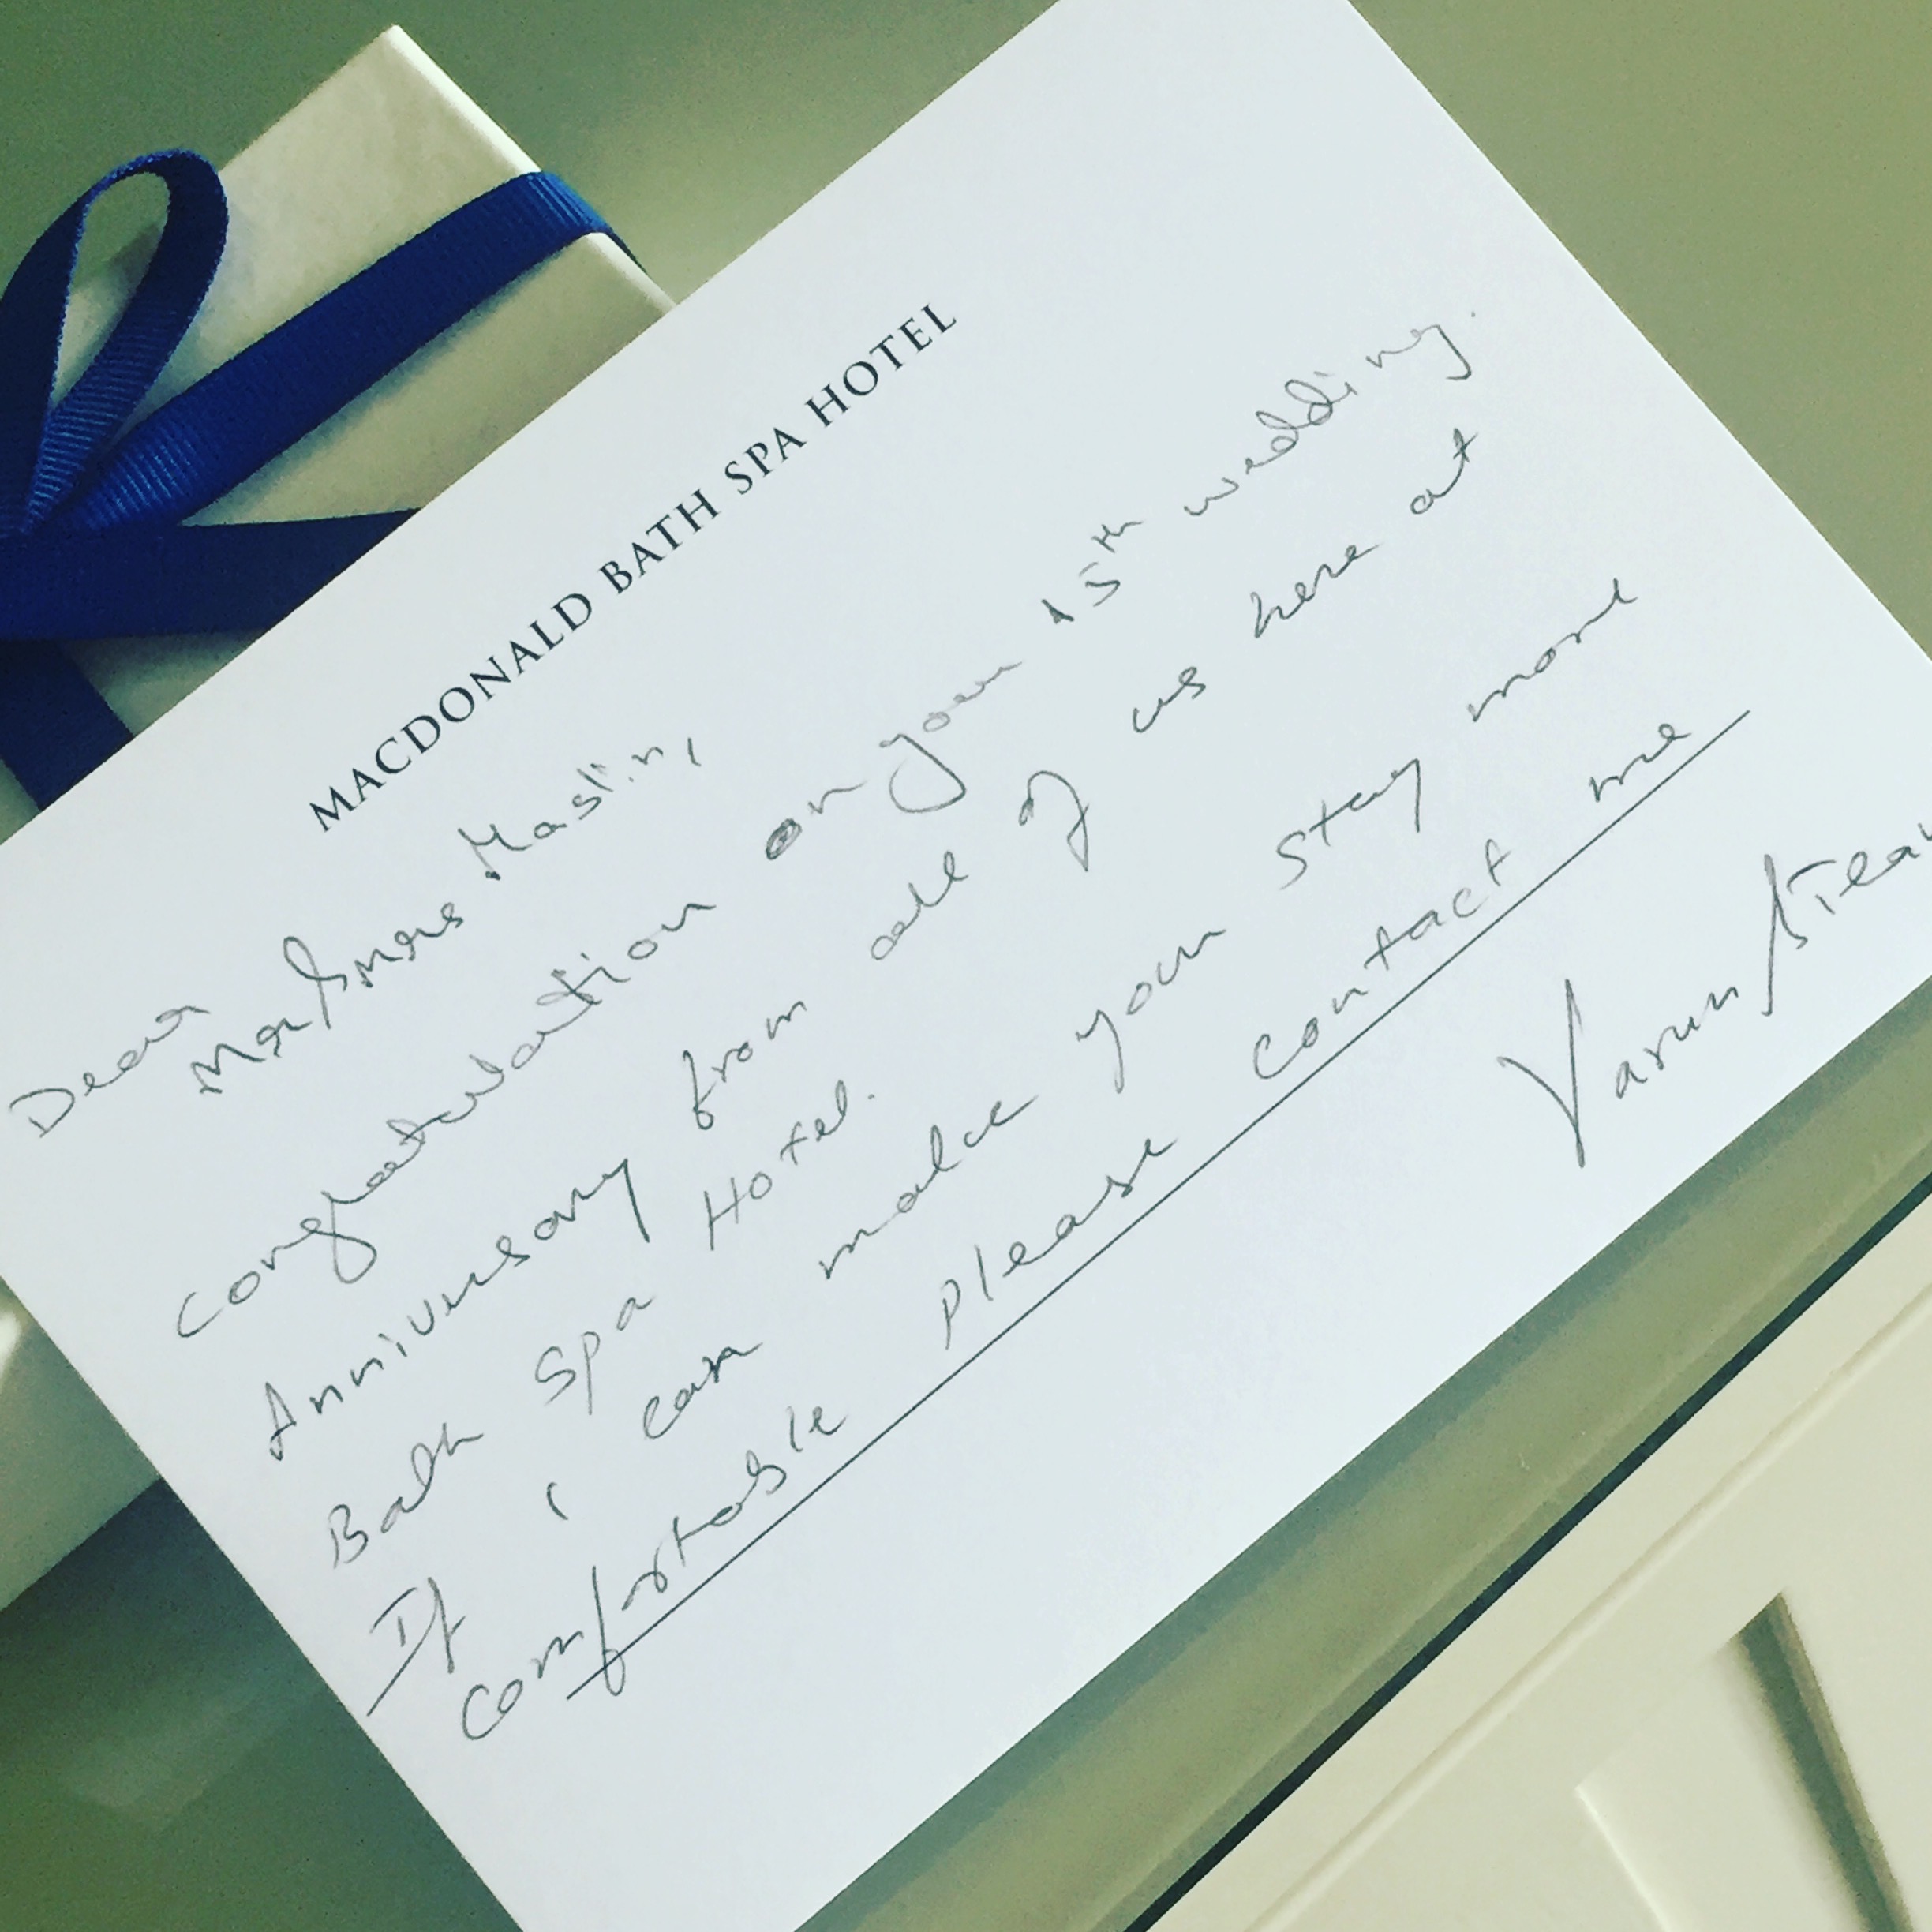 MACDONALD BATH SPA HOTEL
Dear
Mr & mrs Maslin,
Congratulation on your 15th wedding.
Anniversary from all of us here at
Bath Spa Hotel.
If i can make your stay more
comfortable please contact me
Varun